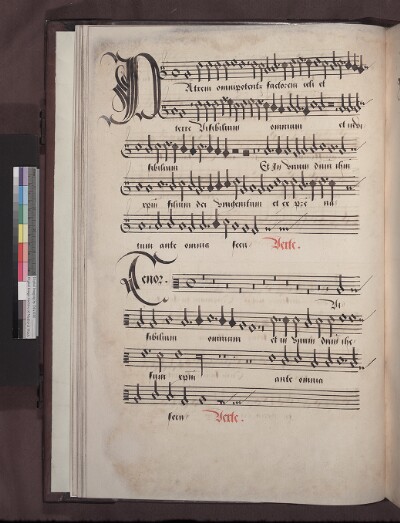 Patrem omnipotentem factorem celi et
terre Visibilium omnium et invi
sibilium Et In unum dnm ihm
xpm filium dei Unigenitum et ex pre na
tum ante omnia secu Verte.
Tenor.
Vi
sibilium omnium et in unum dnm ihe
sum xpm ante omnia
secu Verte.